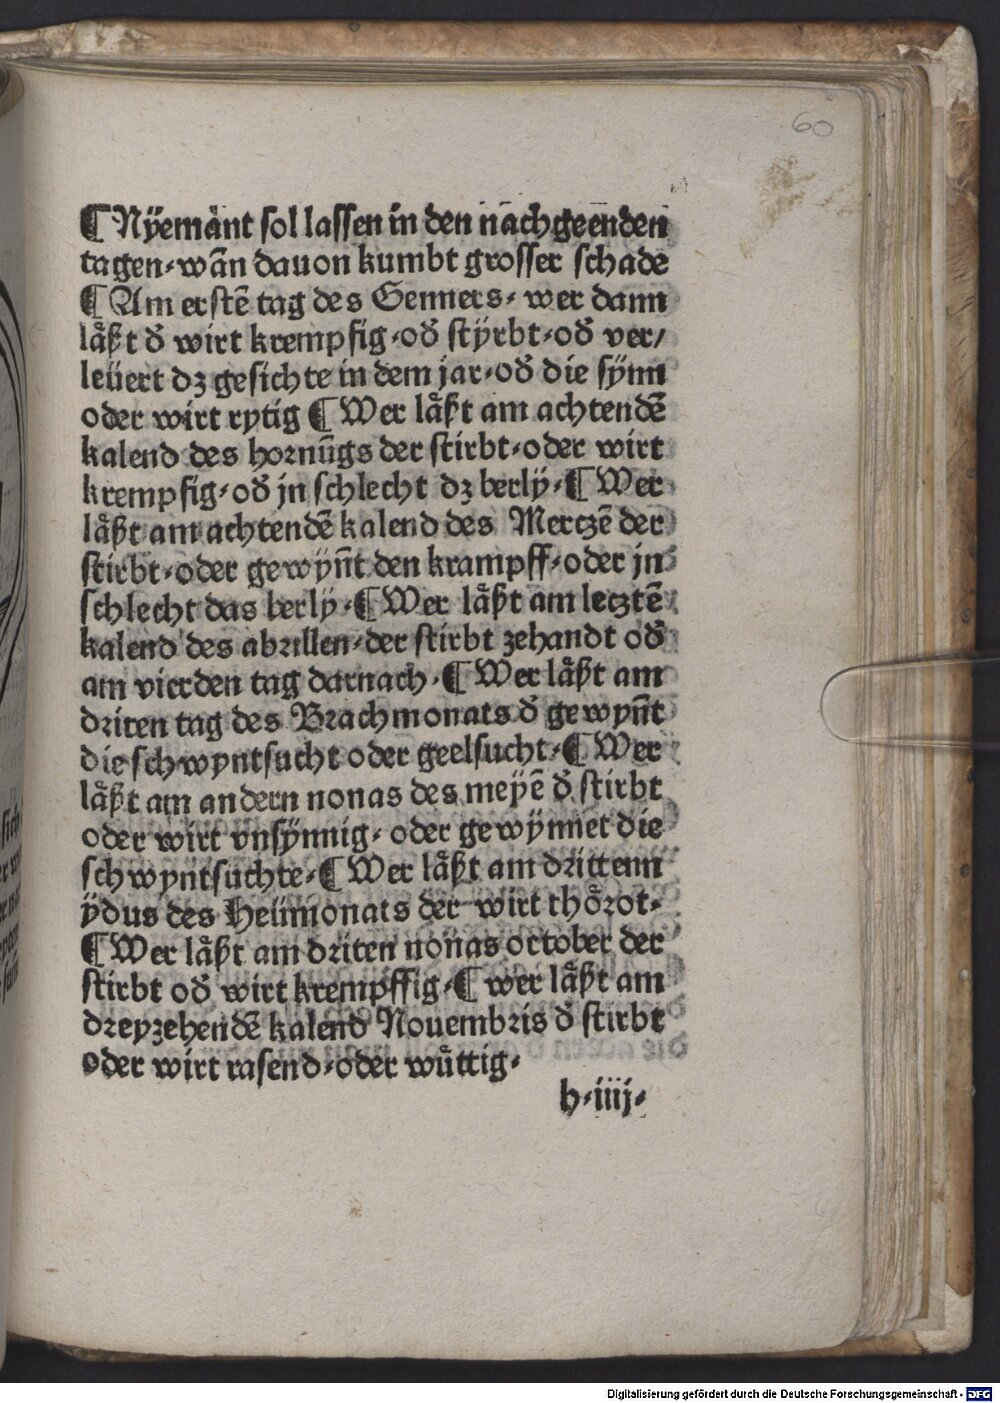 60
¶ Nÿemänt sol lassen in den nachgeenden
tagen·wañ dauon kumbt grosser schade
¶ Am erstē tag des Genners· wer dann
låßt ð wirt krempfig·oð stÿrbt·oð ver/
leüert dz gesichte in dem jar·oð die sÿnn
oder wirt rytig ¶ Wer låßt am achtendē
kalend des hornūgs der stirbt·oder wirt
krempfig·oð jn schlecht dz berlÿ·¶ Wer
låßt am achtendē kalend des Mertzē der
stirbt·oder gewÿnt den krampff·oder jn
schlecht das berlÿ·¶ Wer låßt am letztē
kalend des abrillen·der stirbt zehandt oð
am vierden tag darnach·¶ Wer låßt am
driten tag des Brachmonats ð gewynt
die schwyntsucht oder geelsucht·¶ Wer
låßt am andern nonas des meyē ð stirbt
oder wirt vnsÿnnig· oder gewÿnnet die
schwyntsuchte·¶ Wer låßt am drittenn
ÿdus des Heümonats der wirt thôrot·
¶ Wer låßt am driten nonas october der
stirbt oð wirt krempffig·¶ wer låßt am
dreyzehendē kalend Nouembris ð stirbt
oder wirt rasend·oder wüttig·
h·iiij·
Digitalisierung gefördert durch die Deutsche Forschungsgemeinschaft - DFG